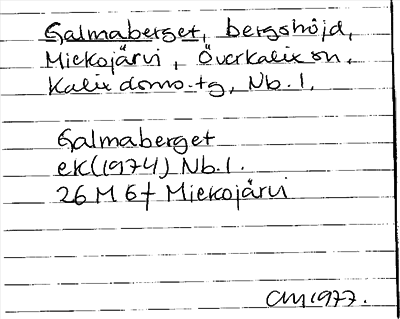 Galmaberget, bergshöjd,
Miekojärvi, Överkalix sn,
Kalix doms.tg, Nb.l.
Galmaberget
ek(1974) Nb.l.
26 M 6f Miekojärvi
CM 1977.